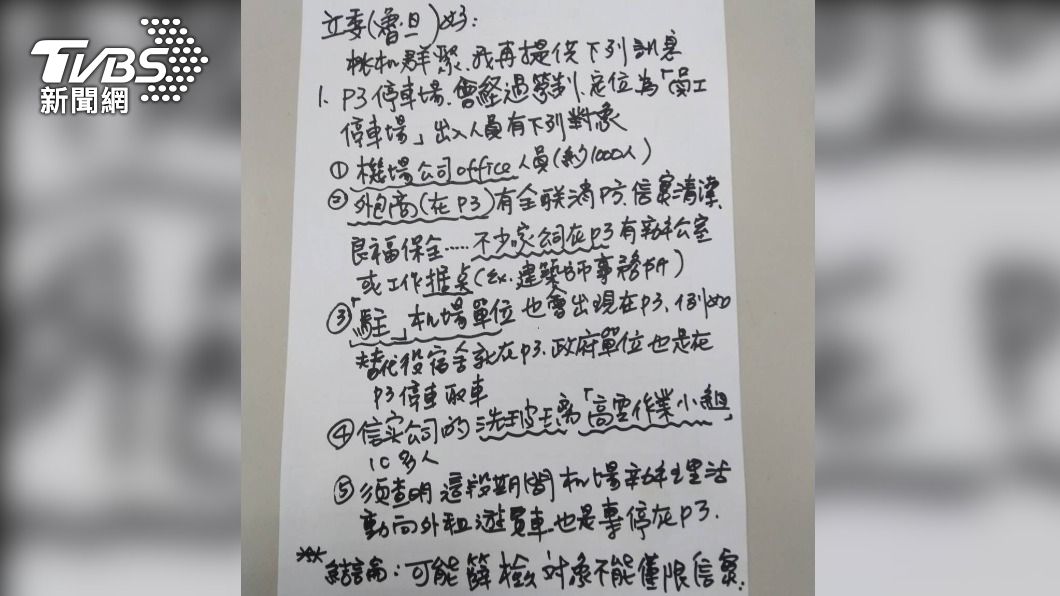 TVBS
新聞網
立委(魯旦)好:
桃机群聚.我再提供下列訊息
1. P3停車場.會経過管制.定位為「員工
停車場」出入人員有下列對象
①機場公司office人員(約1000人)
②外包商(在P3)有全联消防.信實清潔.
良福保全.....不少家公司在P3有辦公室
或工作據点(ex.建築師事務所)
③「駐」机場單位也會出現在P3.例如
替代役宿舍就在P3.政府單位也是在
P3停車取車
④信实公司的洗玻璃「高空作業小組」
10多人
⑤須查明這段期間机場辦理活
動向外租遊覽車也是專停在P3.
結論:可能篩檢对象不能僅限信實.